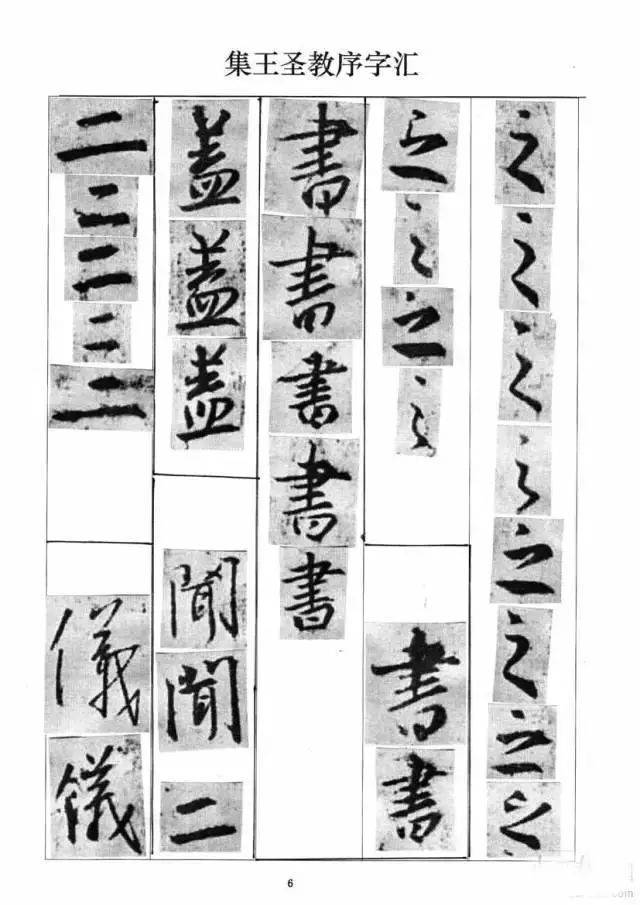 集王圣教序字汇
之之之之之之之之
之之之之書書
書書書書書
蓋蓋蓋聞聞二
二二二二二儀儀
6